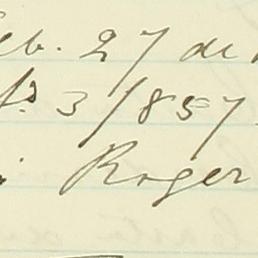 Feb. 27 de
3/857
Roger